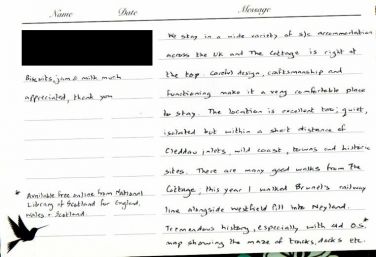 Name Date Message
We stay in a wide variety of s/c accommodation
across the UK and The Cottage is right at
the top. Careful design, craftsmanship and
functioning make it a very comfortable place
to stay. The location is excellent too; quiet,
isolated but within a short distance of
Cleddau inlets, wild coast, towns and historic
sites. There are many good walks from The
Cottage, this year I walked Brunel's railway
line alongside Westfield Pill into Neyland.
Tremendous history, especially with old O.S.*
map showing the maze of tracks, docks etc.
Biscuits, jam & milk much
appreciated, thank you
* Available free online from National
Library of Scotland for England,
Wales & Scotland.